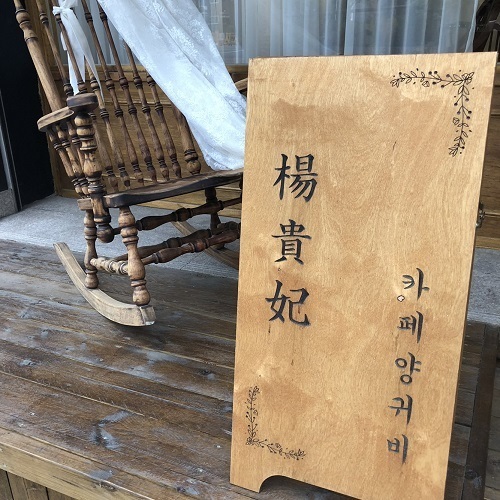 楊貴妃
카페양귀비